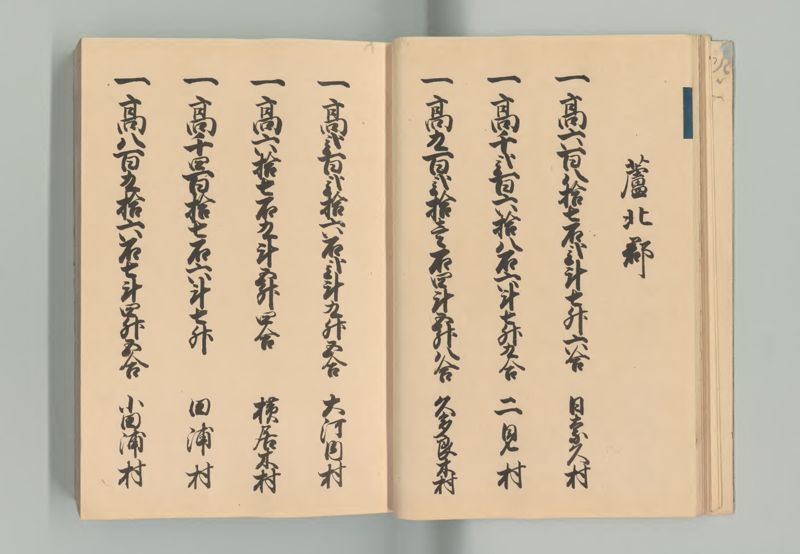 蘆北郡
一高六百八拾七石弐斗七升六合 日奈久村
一高千弐百六拾八石六斗七升九合 二見村
一高九百弐拾壱石四斗五升八合 久多良木村
一高弐百弐拾六石弐斗九升五合 大河内村
一高六拾七石九斗五升四合 横居木村
一高千四百拾七石六斗七升 田浦村
一高八百九拾六石七斗四升五合 小田浦村